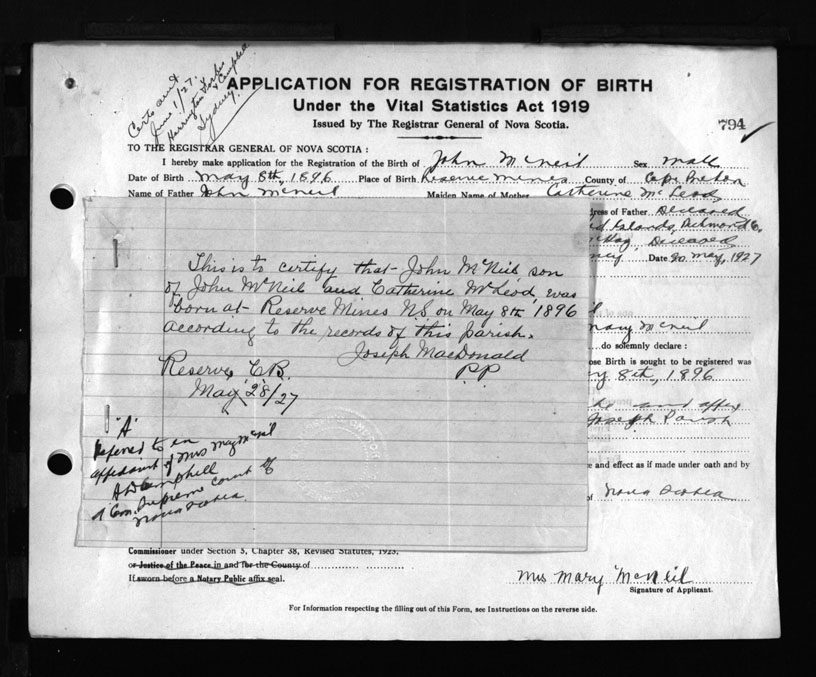 Certs and
June 1/27.
Harrington Forbes
& Campbell
Sydney
APPLICATION FOR REGISTRATION OF BIRTH
Under the Vital Statistics Act 1919
Issued by The Registrar General of Nova Scotia.
794
TO THE REGISTRAR GENERAL OF NOVA SCOTIA :
I hereby make application for the Registration of the Birth of John McNeil Sex male
Date of Birth May 8th, 1896 Place of Birth Reserve Mines County of Cape Breton
Name of Father John McNeil Maiden Name of Mother Catherine McLeod
dress of Father Deceased
Islands, Richmond Co.
Deceased
ney Date 20 May, 1927
This is to certify that John McNeil son
of John McNeil and Catherine McLeod, was
born at Reserve Mines N.S. on May 8th, 1896
according to the records of this parish.
Joseph MacDonald
P.P.
Reserve C.B.
May 28/27
Mary McNeil
do solemnly declare :
ose Birth is sought to be registered was
y 8th, 1896
and affix
Joseph Parish
e and effect as if made under oath and by
of Nova Scotia
"A"
Referred to in
affidavit of Mrs Mary McNeil
A D Campbell
A Com. Supreme Court of
Nova Scotia
Commissioner under Section 3, Chapter 38, Revised Statutes, 1923.
or Justice of the Peace in and for the County of
If sworn before a Notary Public affix seal.
Mrs Mary McNeil
Signature of Applicant.
For Information respecting the filling out of this Form, see Instructions on the reverse side.